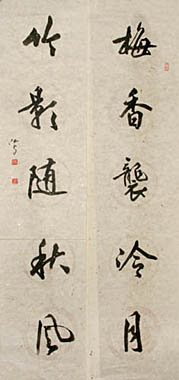 梅香襲冷月
竹影随秋风